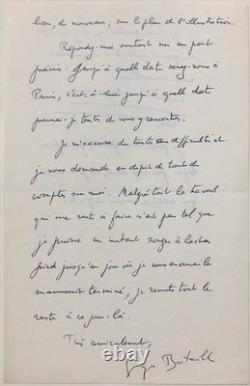 lieu, de nouveau, sur le plan de l'illustration.
Répondez-moi surtout sur un point
précis : jusqu'à quelle date serez-vous à
Paris, c'est-à-dire jusqu'à quelle date
pourrai-je tenter de vous y rencontrer.
Je m'excuse de toutes ces difficultés et
je vous demande en dépit de tout de
compter sur moi. Malgré tout le travail
qui me reste à faire n'est pas tel que
je puisse un instant songer à lâcher
pied jusqu'au jour où je vous enverrai le
manuscrit terminé, je remets tout le
reste à ce jour-là.
Très amicalement,
Georges Bataille
© ebay